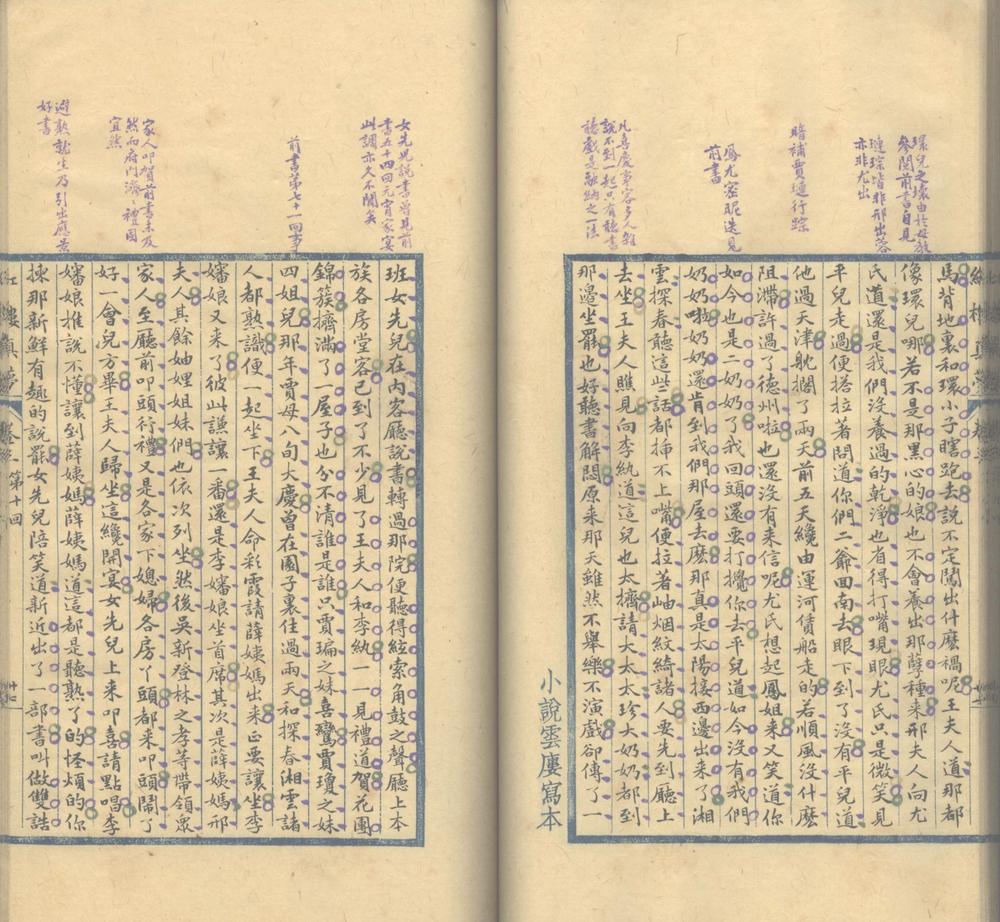 環兒之壞由於母教
參閱前書自見
璉琮皆非邢出蓉
亦非尤出
暗補賈璉行踪
鳳尤密昵迭見
前書
凡喜慶事客多人雜
說不到一起只有聽書
聽戲是融納之一法
馬背地裏和環小子瞎跑去說不定鬧出什麽禍呢王夫人道那都
像環兒哪若不是那黑心的娘也不會養出那孽種來邢夫人向尤
氏道還是我們沒養過的乾淨也省得打嘴現眼尤氏只是微笑見
平兒走過便搭拉著問道你們二爺回南去眼下到了沒有平兒道
他過天津躭擱了兩天前五天纔由運河賃船走的若順風沒什麽
阻滯許過了德州啦也還沒有來信呢尤氏想起鳳姐來又笑道你
如今也是二奶奶了我回頭還要打攪你去平兒道如今沒有我們
奶奶啦奶奶還肯到我們那屋去麽那真是太陽接西邊出來了湘
雲探春聽這些話都揷不上嘴便拉著岫烟紋綺諸人要先到廳上
去坐王夫人瞧見向李紈道這兒也太擠請大太太珍大奶奶都到
那邊坐罷也好聽書解悶原来那天雖然不舉樂不演戲卻傳了一
小說雲廔寫本
女先兒說書曾見前
書五十四回元宵家宴
此調亦久不聞矣
前書第七十一回事
家人叩賀前書未及
然而府門濟濟禮固
宜然
避熟就生乃引出應景
好書
班女先兒在內客廳說書轉過那院便聽得絃索角鼓之聲廳上本
族各房堂客已到了不少見了王夫人和李紈一一見禮道賀花團
錦簇擠滿了一屋子也分不清誰是誰只賈㻞之妹喜鸞賈瓊之妹
四姐兒那年賈母八旬大慶曾在園子裏住過兩天和探春湘雲諸
人都熟識便一起坐下王夫人命彩霞請薛姨媽出来正要讓坐李
嬸娘又来了彼此謙讓一番還是李嬸娘坐首席其次是薛姨媽邢
夫人其餘妯娌姐妹們也依次列坐然後吳新登林之孝等帶領衆
家人至廳前叩頭行禮又是各家下媳婦各房丫頭都来叩頭鬧了
好一會兒方畢王夫人歸坐這纔開宴女先兒上来叩喜請點唱李
嬸娘推說不懂讓到薛姨媽薛姨媽道這都是聽熟了的怪煩的你
揀那新鮮有趣的說罷女先兒陪笑道新近出了一部書叫做雙誥
紅樓真夢
第十回